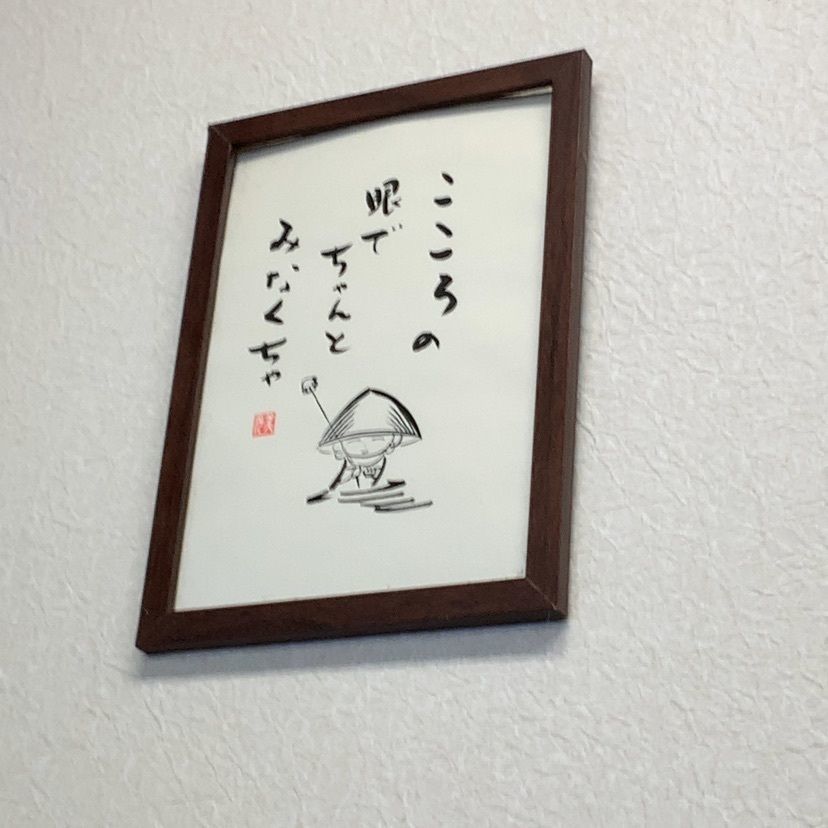 こころの
眼で
ちゃんと
みなくちゃ